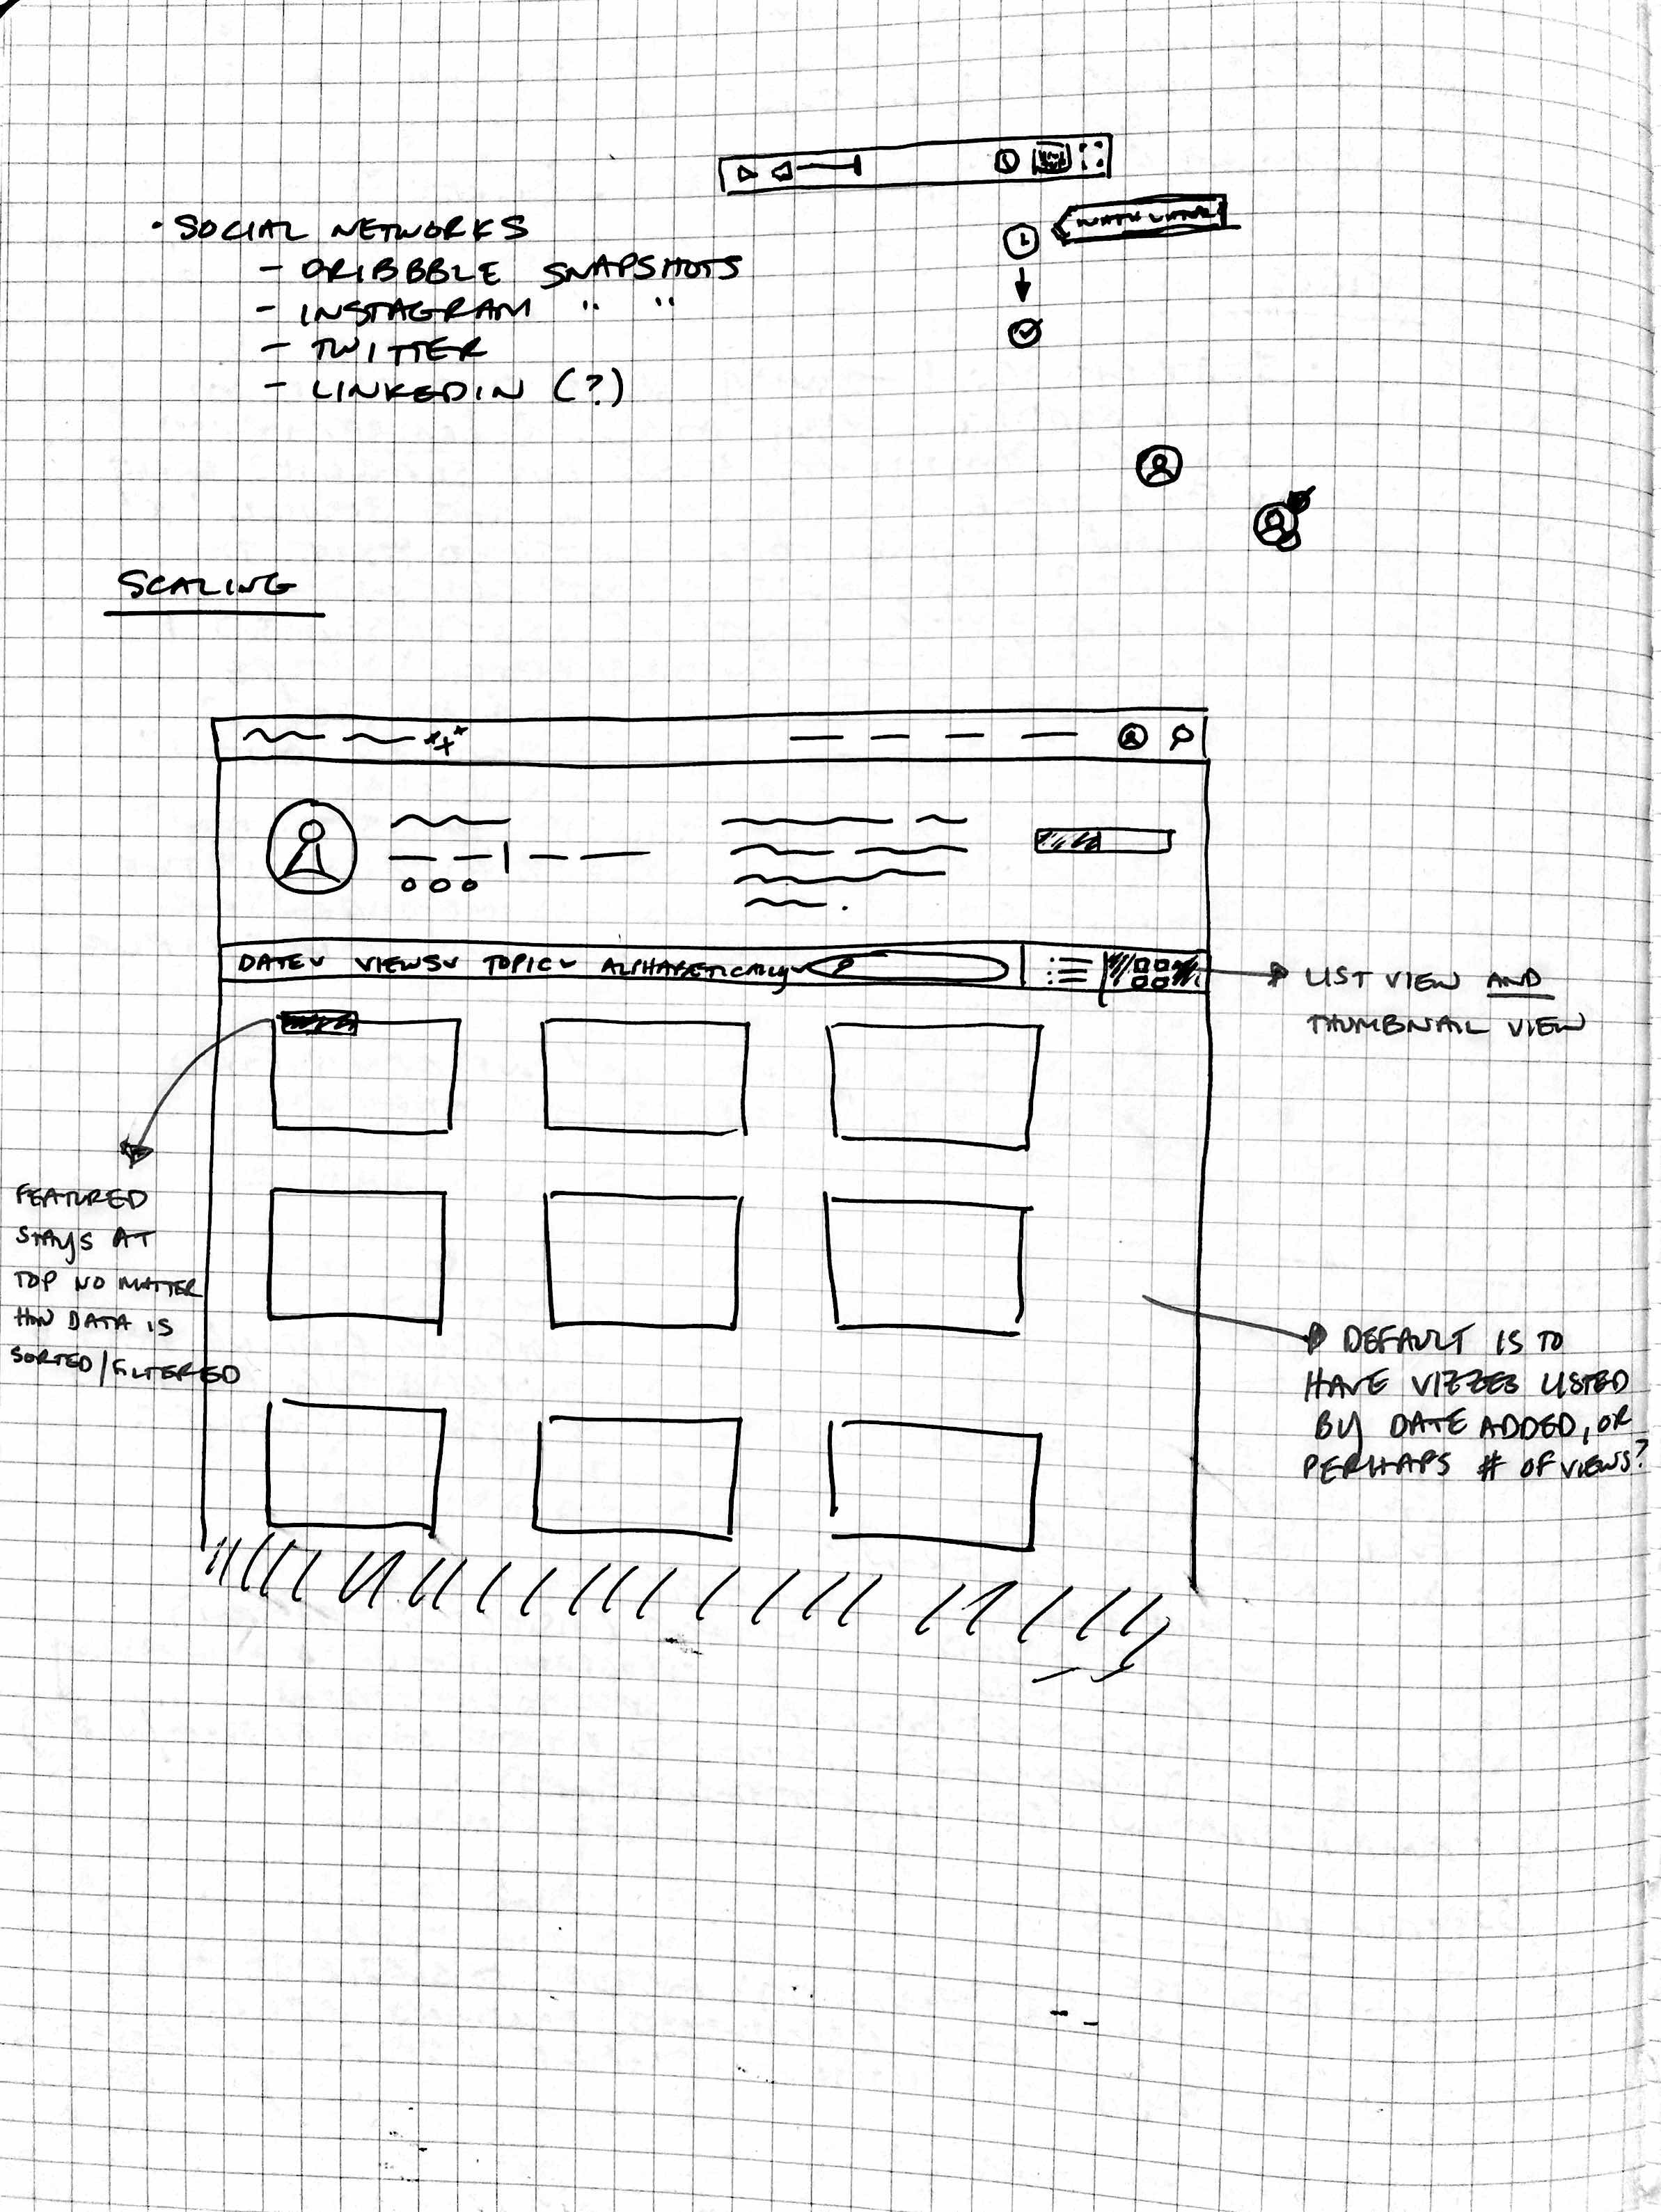 WATCH LATER
• SOCIAL NETWORKS
- DRIBBBLE SNAPSHOTS
- INSTAGRAM " "
- TWITTER
- LINKEDIN (?)
SCALING
DATE VIEWS TOPIC ALPHABETICALLY
LIST VIEW AND
THUMBNAIL VIEW
FEATURED
STAYS AT
TOP NO MATTER
HOW DATA IS
SORTED/FILTERED
DEFAULT IS TO
HAVE VIZZES LISTED
BY DATE ADDED, OR
PERHAPS # OF VIEWS?